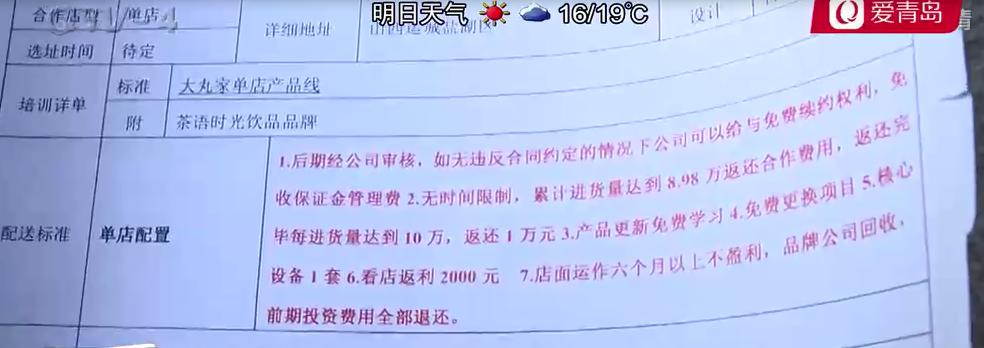 明日天气 16/19℃
爱青岛
合作店型 单店
详细地址 山西运城盐湖区
设计
选址时间 待定
培训详单 标准 大丸家单店产品线
附 茶语时光饮品品牌
配送标准 单店配置
1.后期经公司审核，如无违反合同约定的情况下公司可以给与免费续约权利，免
收保证金管理费 2.无时间限制，累计进货量达到 8.98 万返还合作费用，返还完
毕每进货量达到 10 万，返还 1 万元 3.产品更新免费学习 4.免费更换项目 5.核心
设备 1 套 6.看店返利 2000 元 7.店面运作六个月以上不盈利，品牌公司回收，
前期投资费用全部退还。